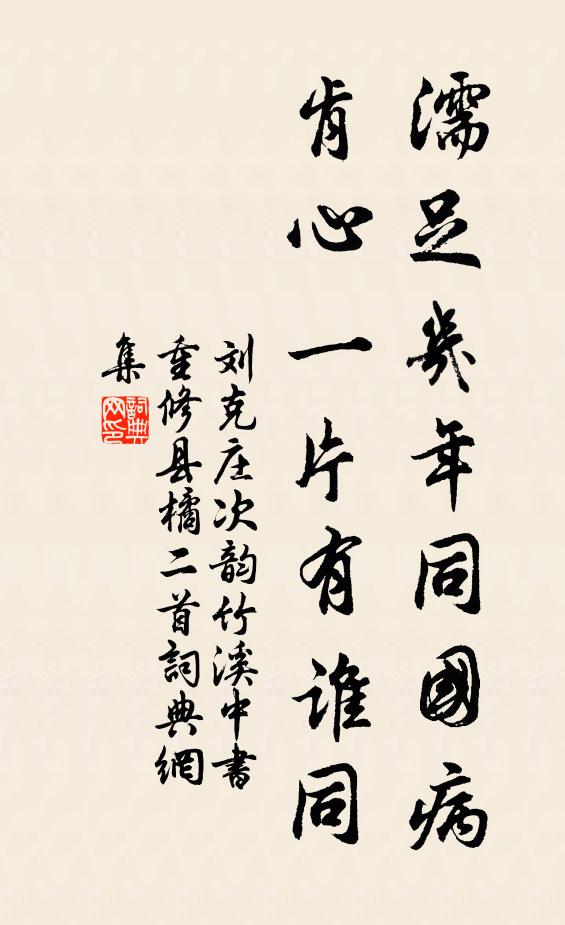 濡足幾年同國病
肯心一片有誰同
刘克庄次韵竹溪中書
重修县橘二首詞典網
集
詞典
网印